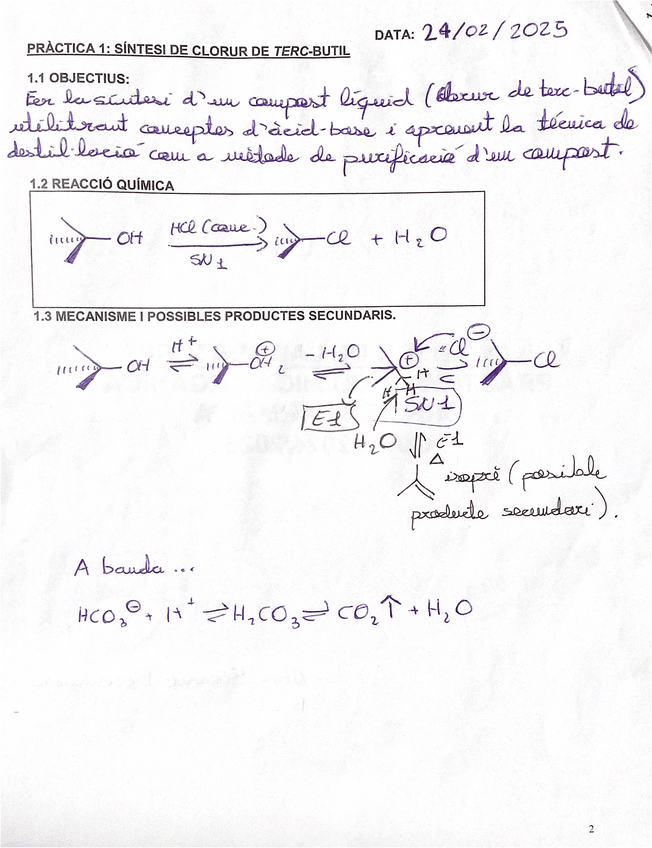 DATA: 24/02/2025
PRÀCTICA 1: SÍNTESI DE CLORUR DE TERC-BUTIL
1.1 OBJECTIUS:
Fer la síntesi d'un compost líquid (clorur de terc-butil)
utilitzant conceptes d'àcid-base i aprenent la tècnica de
destil·lació com a mètode de purificació d'un compost.
1.2 REACCIÓ QUÍMICA
OH HCl (conc.) SN1 Cl + H2O
1.3 MECANISME I POSSIBLES PRODUCTES SECUNDARIS.
OH H+ ⇌ OH2 ⊕ - H2O ⇌ ⊕ Cl ⊖ Cl
H
H H
E1 SN1
H2O E1
Δ
isoprè (possible
producte secundari).
A banda ...
HCO3⊖ + H+ ⇌ H2CO3 ⇌ CO2↑ + H2O
2